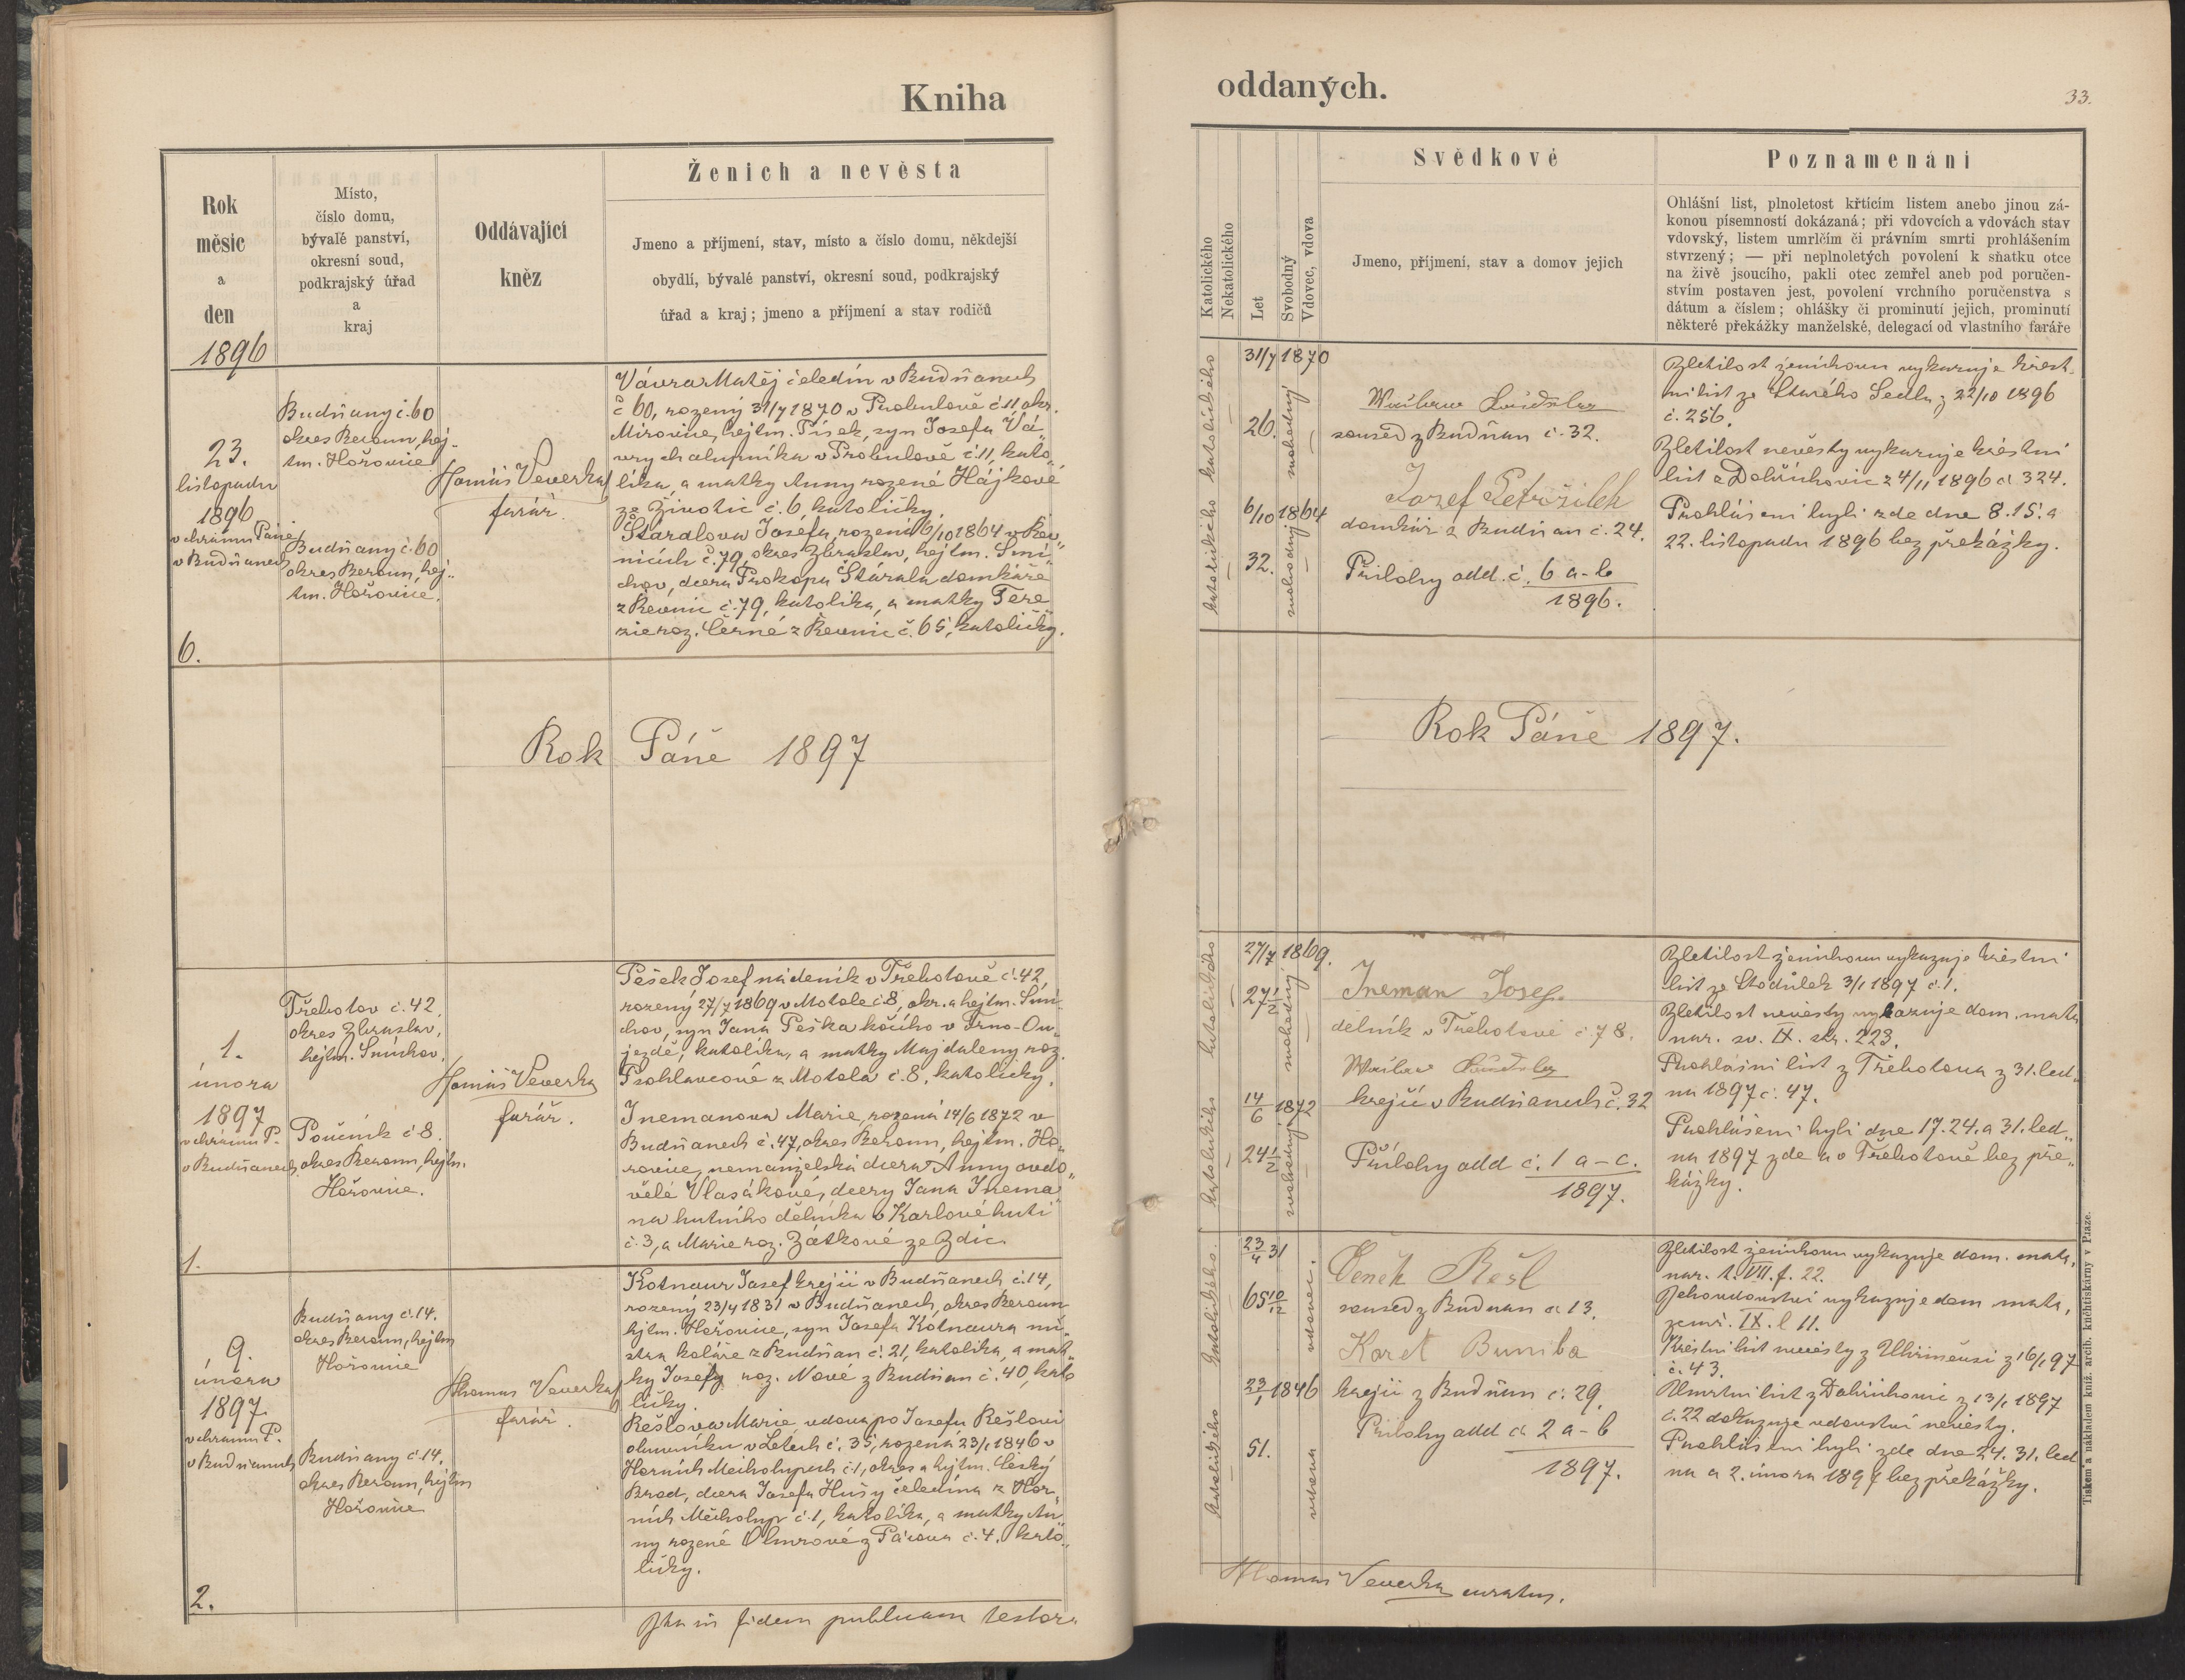 Kniha
oddaných.
33.
Rok
měsíc
a
den
1896
Místo,
číslo domu,
bývalé panství,
okresní soud,
podkrajský úřad
a
kraj
Oddávající
kněz
Ženich a nevěsta
Jmeno a příjmení, stav, místo a číslo domu, někdejší
obydlí, bývalé panství, okresní soud, podkrajský
úřad a kraj; jmeno a příjmení a stav rodičů
Katolického
Nekatolického
Let
Svobodný
Vdovec, vdova
Svědkové
Jmeno, příjmení, stav a domov jejich
Poznamenání
Ohlášní list, plnoletost křtícím listem anebo jinou zá-
konou písemností dokázaná; při vdovcích a vdovách stav
vdovský, listem umrlčím či právním smrti prohlášením
stvrzený; — při neplnoletých povolení k sňatku otce
na živě jsoucího, pakli otec zemřel aneb pod poručen-
stvím postaven jest, povolení vrchního poručenstva s
dátum a číslem; ohlášky či prominutí jejich, prominutí
některé překážky manželské, delegací od vlastního faráře
23.
listopadu
1896
v chrámu Páně
v Budňanech
6.
Budňany č. 60
okres Beroun, hej-
tm. Hořovice
Budňany č. 60
okres Beroun, hej-
tm. Hořovice.
Tomáš Veverka
farář.
Vávra Matěj čeledín v Budňanech
č 60, rozený 31/7 1870 v Probulově č 11 okr.
Mirovice, hejtm. Písek, syn Josefa Vá-
vry chalupníka v Probulově č. 11, kato-
líka, a matky Anny rozené Hájkové
ze Životic č. 6 katoličky.
Štáralova Josefa, rozená 6/10 1864 v Řev-
nicích č. 79, okres Zbraslav, hejtm. Smí-
chov, dcera Prokopa Štárala domkáře
z Řevnic č. 79, katolíka, a matky Tere-
zie roz. Černé z Řevnic č. 65, katoličky.
katolického
31/7 1870
26.
svobodný
katolického
6/10 1864
32.
svobodný
soused z Budňan č. 32.
Josef Petržilek
domkář z Budňan č. 24.
Přílohy odd. č. 6 a-b
1896.
Zletilost ženichovu vykazuje křest-
ní list ze Starého Sedla z 22/10 1896
č. 256.
Zletilost nevěsty vykazuje křestní
list z Dobřichovic z 4/11 1896 č. 324.
Prohlášeni byli zde dne 8. 15. a
22. listopadu 1896 bez překážky.
Rok Páně 1897
Rok Páně 1897.
1.
února
1897
v chrámu P.
v Budňanech
1.
Třebotov č. 42
okres Zbraslav,
hejtm. Smíchov.
Poučník č 8.
okres Beroun, hejtm.
Hořovice.
Tomáš Veverka
farář.
Pešek Josef nádeník v Třebotově č. 42,
rozený 27/7 1869 v Motole č 8, okr. a hejtm. Smí-
chov, syn Jana Peška kočího v Trno-Ou-
jezdě, katolíka, a matky Majdaleny roz.
z Motola č. 8, katoličky.
Inemanova Marie, rozená 14/6 1872 v
Budňanech č. 47, okres Beroun, hejtm. Ho-
řovice, nemanželská dcera Anny ovdo-
vělé Vlasákové, dcery Jana Inema-
na hutního dělníka v Karlově huti
č. 3, a Marie roz. Zátkové ze Zdic.
katolického
27/7 1869.
27 1/2
svobodný
katolického
14/6 1872
24 1/2
svobodný
Ineman Josef.
dělník v Třebotově č. 78.
krejčí v Budňanech č. 32
Přílohy odd č. 1 a-c.
1897.
Zletilost ženichovu vykazuje křestní
list ze Stodůlek 3/1 1897 č. 1.
Zletilost nevěsty vykazuje dom. mata
nar. sv. IX. str. 223.
Prohlašní list z Třebotova z 31. led-
na 1897 č. 47.
Prohlášeni byli dne 17. 24. a 31. led-
na 1897 zde a v Třebotově bez pře-
kážky.
9.
února
1897
v chrámu P.
v Budňanech
2.
Budňany č. 14.
okres Beroun, hejtm
Hořovice
Budňany č. 14.
okres Beroun, hejtm
Hořovice
Thomas Veverka
farář.
Kotnaur Josef krejčí v Budňanech č. 14,
rozený 23/4 1831 v Budňanech, okres Beroun
hjtm. Hořovice, syn Josefa Kotnaura mi-
stra koláře z Budňan č. 21, katolíka, a mat-
ky Josefy roz. Nové z Budňan č. 40, kato-
ličky.
Rešlova Marie vdova po Josefu Rešlovi
v Letech č. 35, rozená 23/1 1846 v
Horních Měcholupech č. 1, okres a hejtm. Český
Brod, dcera Josefa Husy čeledína z Hor-
ních Měcholup č. 1, katolíka, a matky An-
ny rozené z č. 4, kato-
ličky.
Katolického.
23/4 31
65 10/12
vdovec.
Katolického
23/1 1846
51.
vdova
Čeněk Rešl
soused z Budňan č. 13.
Karel Buniba
krejčí z Budňan č. 29.
Přílohy odd č. 2 a-b
1897.
Zletilost ženichovu vykazuje dom. mata,
nar. t. VII. f. 22.
Jeho vdovství vykazuje dom mata,
zemř. IX. l 11.
Křestní list nevěsty z Uhříněvsi z 16/1 97
č. 43.
Úmrtní list z Dobřichovic z 13/1 1897
č. 22 dokazuje vdovství nevěsty.
Prohlášeni byli zde dne 24. 31. led-
na a 2. února 1897 bez překážky.
Ita in fidem publicam testor.
Thomas Veverka curatus.
Tiskem a nákladem kníž. arcib. knihtiskárny v Praze.